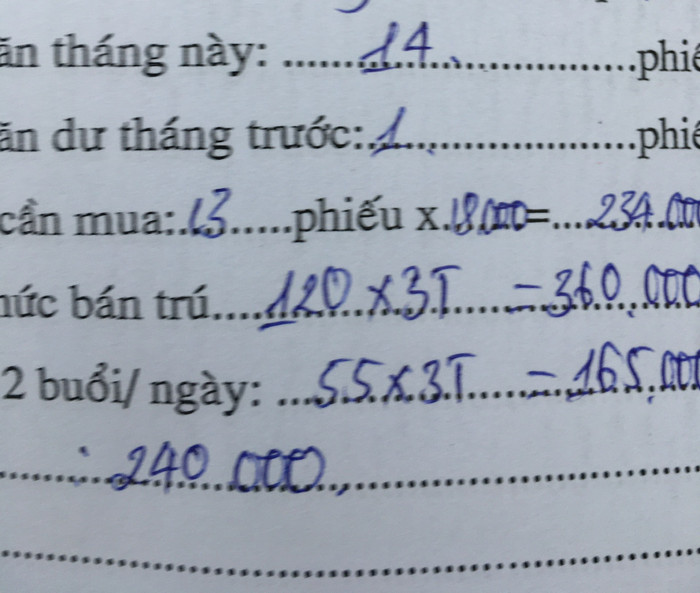 ăn tháng này: ........14...................phiế
ăn dư tháng trước:.1.......................phiế
cần mua:.13.....phiếu x.18.000=....234.000
hức bán trú....120 x 3T.....= 360.000
2 buổi/ ngày: ...55 x 3T.....= 165.000
........: 240.000,..............................